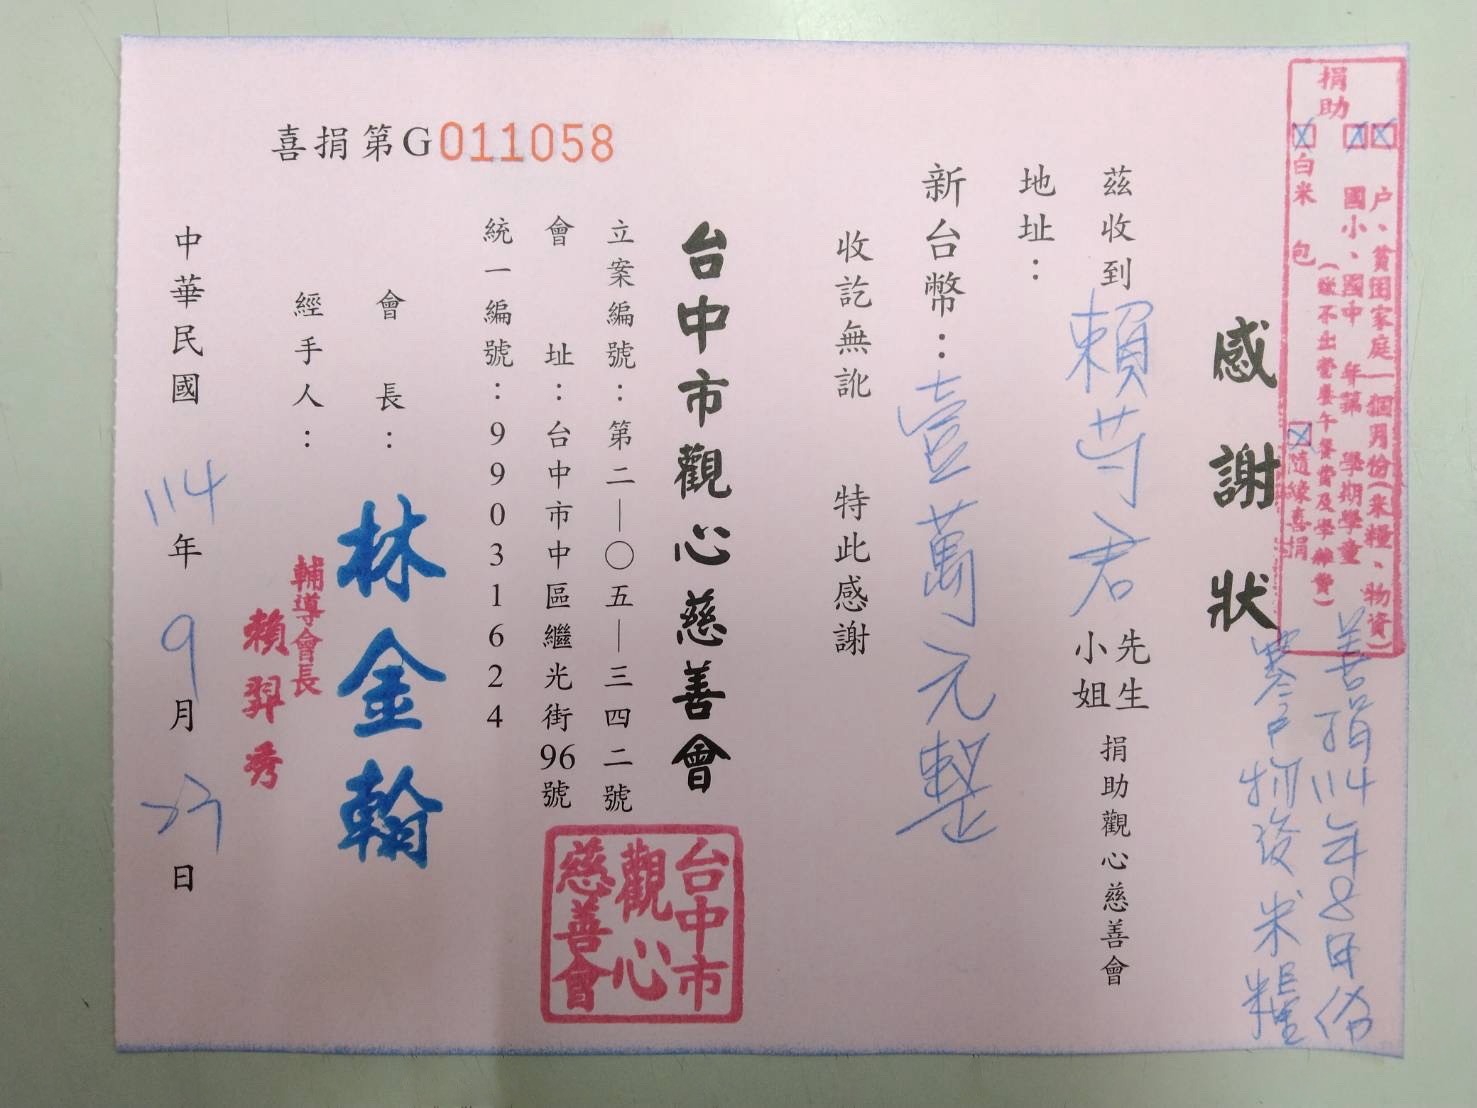 捐助
☒ 戶、貧困家庭一個月份(米糧、物資)
☒ 國小、國中 年第 學期學童
(繳不出營養午餐費及學雜費)
☒白米 包 ☒隨緣喜捐
善捐114年8月份
寒戶物資米糧
感謝狀
茲收到 賴芎君 先生 小姐 捐助觀心慈善會
地址：
新台幣：壹萬元整
收訖無訛 特此感謝
台中市觀心慈善會
立案編號：第二—〇五—三四二號
會 址：台中市中區繼光街96號
統一編號：99031624
台中市
觀心
慈善會
喜捐第G011058
會 長：林金翰
經手人：
輔導會長
賴羿秀
中華民國 114年 9月 日